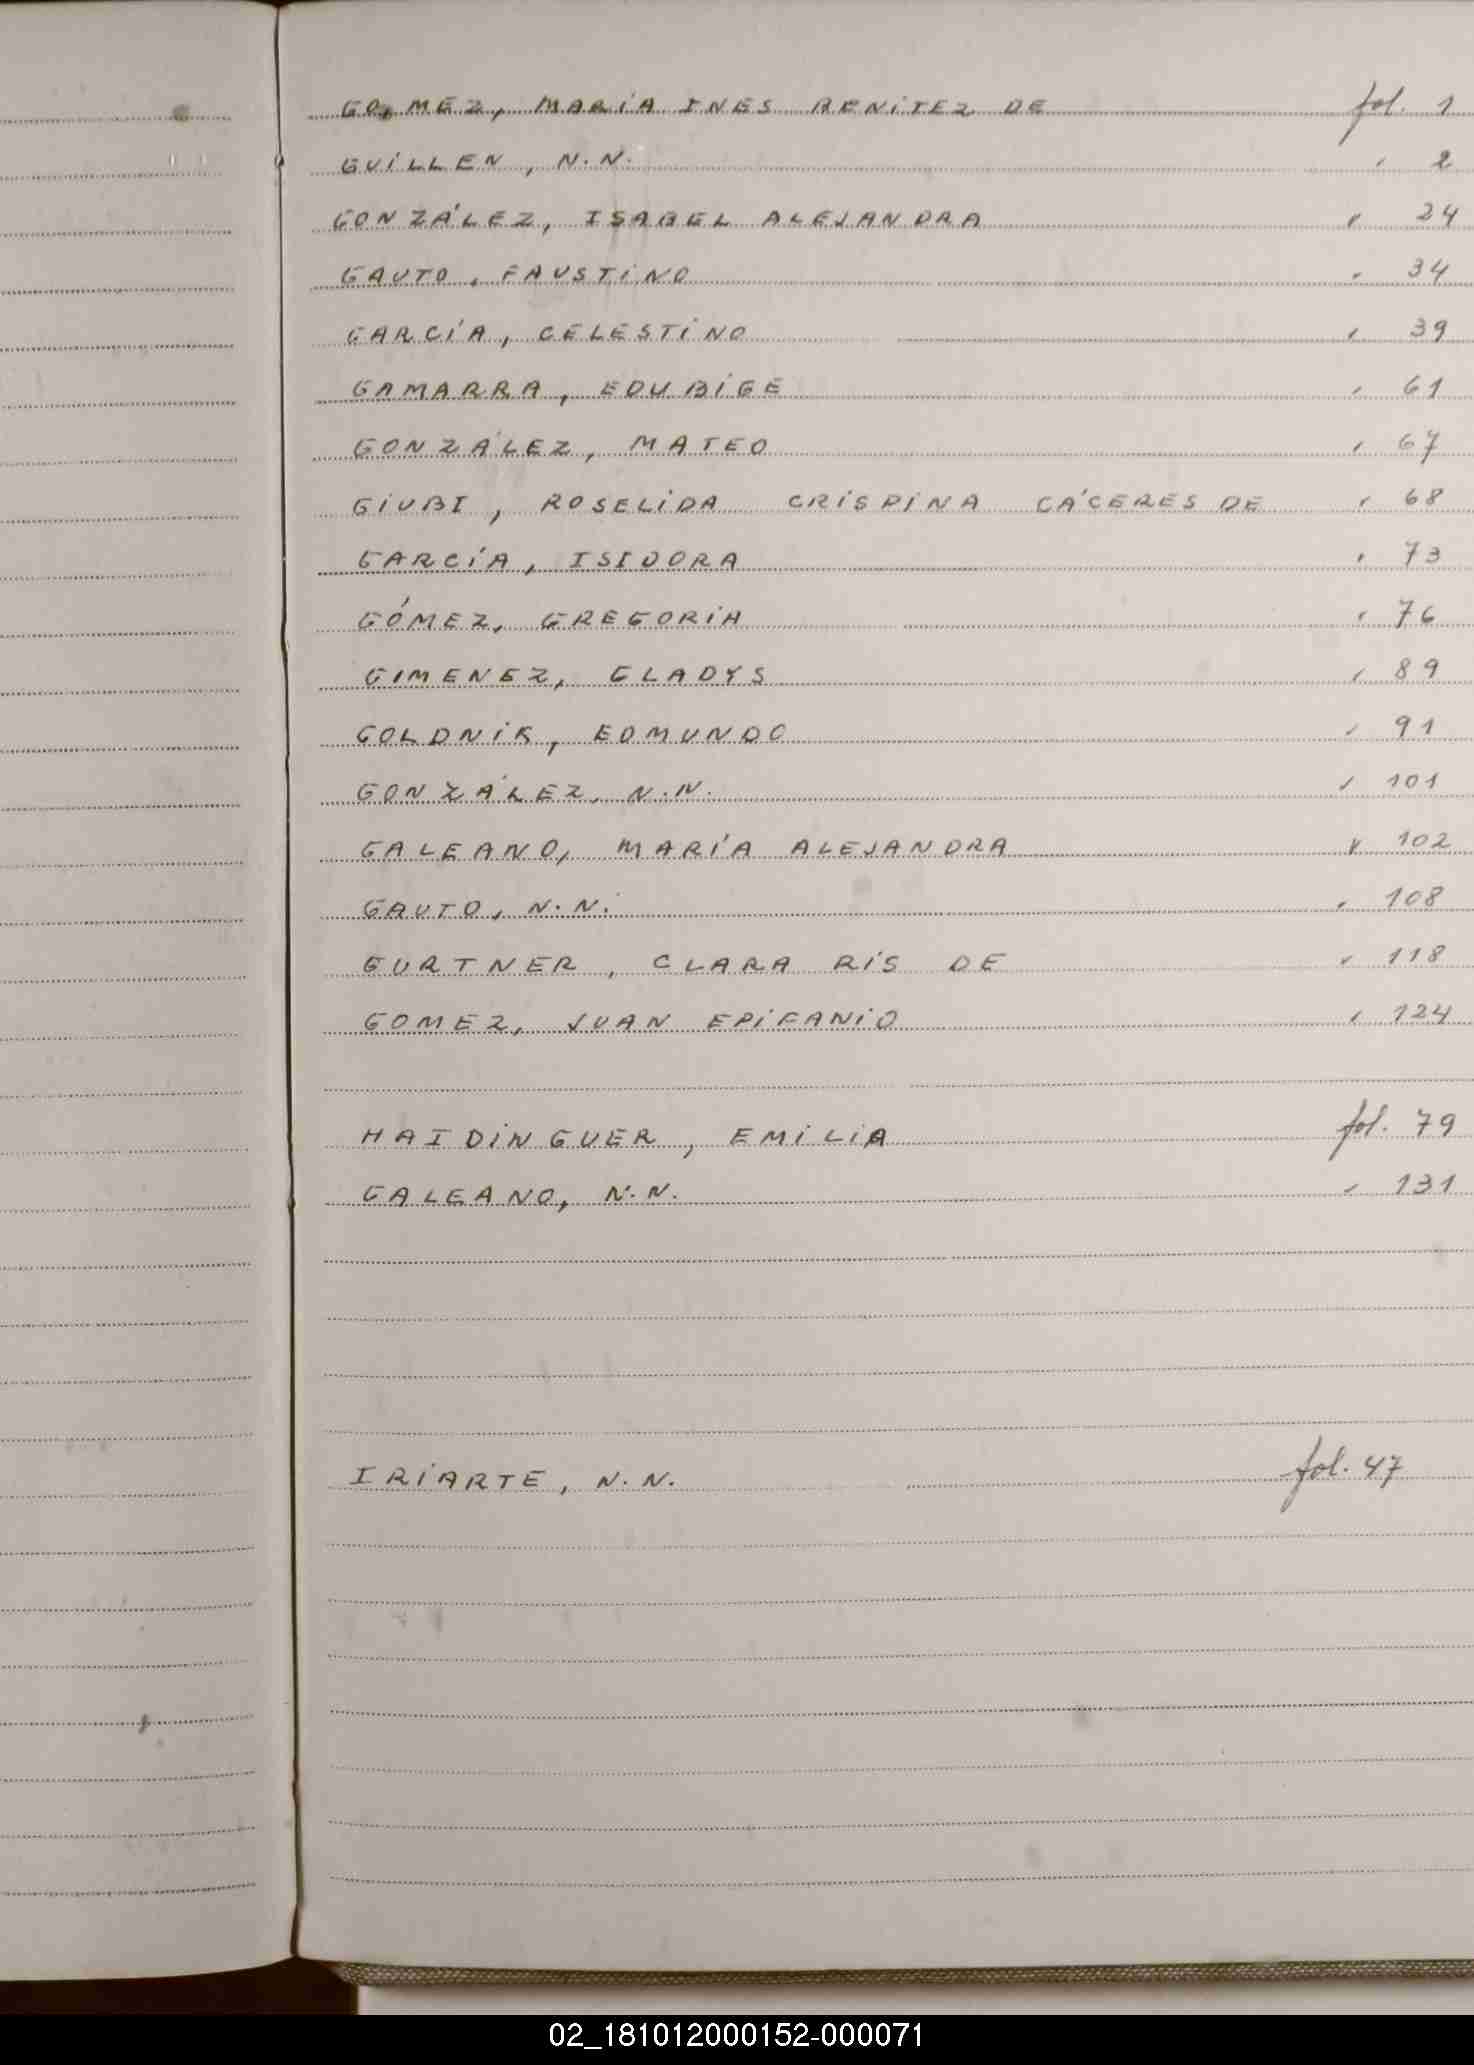 GOMEZ, MARÍA INES BENÍTEZ DE fol. 1
GUILLEN, N.N. " 2
GONZÁLEZ, ISABEL ALEJANDRA " 24
GAUTO, FAUSTINO " 34
GARCÍA, CELESTINO " 39
GAMARRA, EDUBIGE " 61
GONZÁLEZ, MATEO " 67
GIUBI, ROSELIDA CRISPINA CÁCERES DE " 68
GARCÍA, ISIDORA " 73
GÓMEZ, GREGORIA " 76
GIMENEZ, GLADYS " 89
GOLDNIK, EDMUNDO " 91
GONZÁLEZ, N.N. " 101
GALEANO, MARÍA ALEJANDRA " 102
GAUTO, N.N. " 108
GURTNER, CLARA RIS DE " 118
GOMEZ, JUAN EPIFANIO " 124
HAIDINGUER, EMILIA fol. 79
GALEANO, N.N. " 131
IRIARTE, N.N. fol. 47
02_181012000152-000071